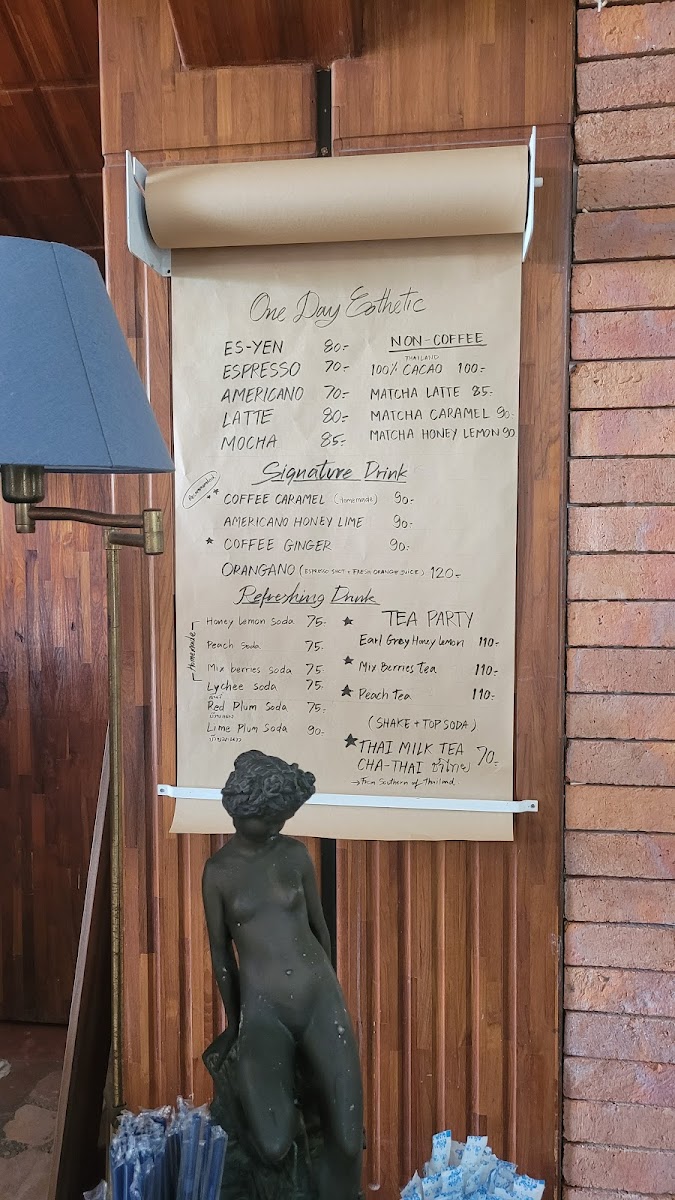 One Day Esthetic
ES-YEN 80.-
ESPRESSO 70.-
AMERICANO 70.-
LATTE 80.-
MOCHA 85.-
NON-COFFEE
THAILAND
100% CACAO 100.-
MATCHA LATTE 85.-
MATCHA CARAMEL 90.-
MATCHA HONEY LEMON 90
Signature Drink
COFFEE CARAMEL (Homemade) 90.-
AMERICANO HONEY LIME 90.-
★ COFFEE GINGER 90.-
ORANGANO (ESPRESSO SHOT + FRESH ORANGE JUICE) 120.-
Refreshing Drink
Homemade
Honey Lemon Soda 75.-
Peach Soda 75.
Mix berries Soda 75.
Lychee Soda 75.
Red Plum Soda 75.
Lime Plum Soda 90.
TEA PARTY
★ Earl Grey Honey Lemon 110.-
★ Mix Berries Tea 110.-
★ Peach Tea 110.-
(SHAKE + TOP SODA)
★ THAI MILK TEA 70.-
CHA-THAI ชาไทย
→ From Southern of Thailand